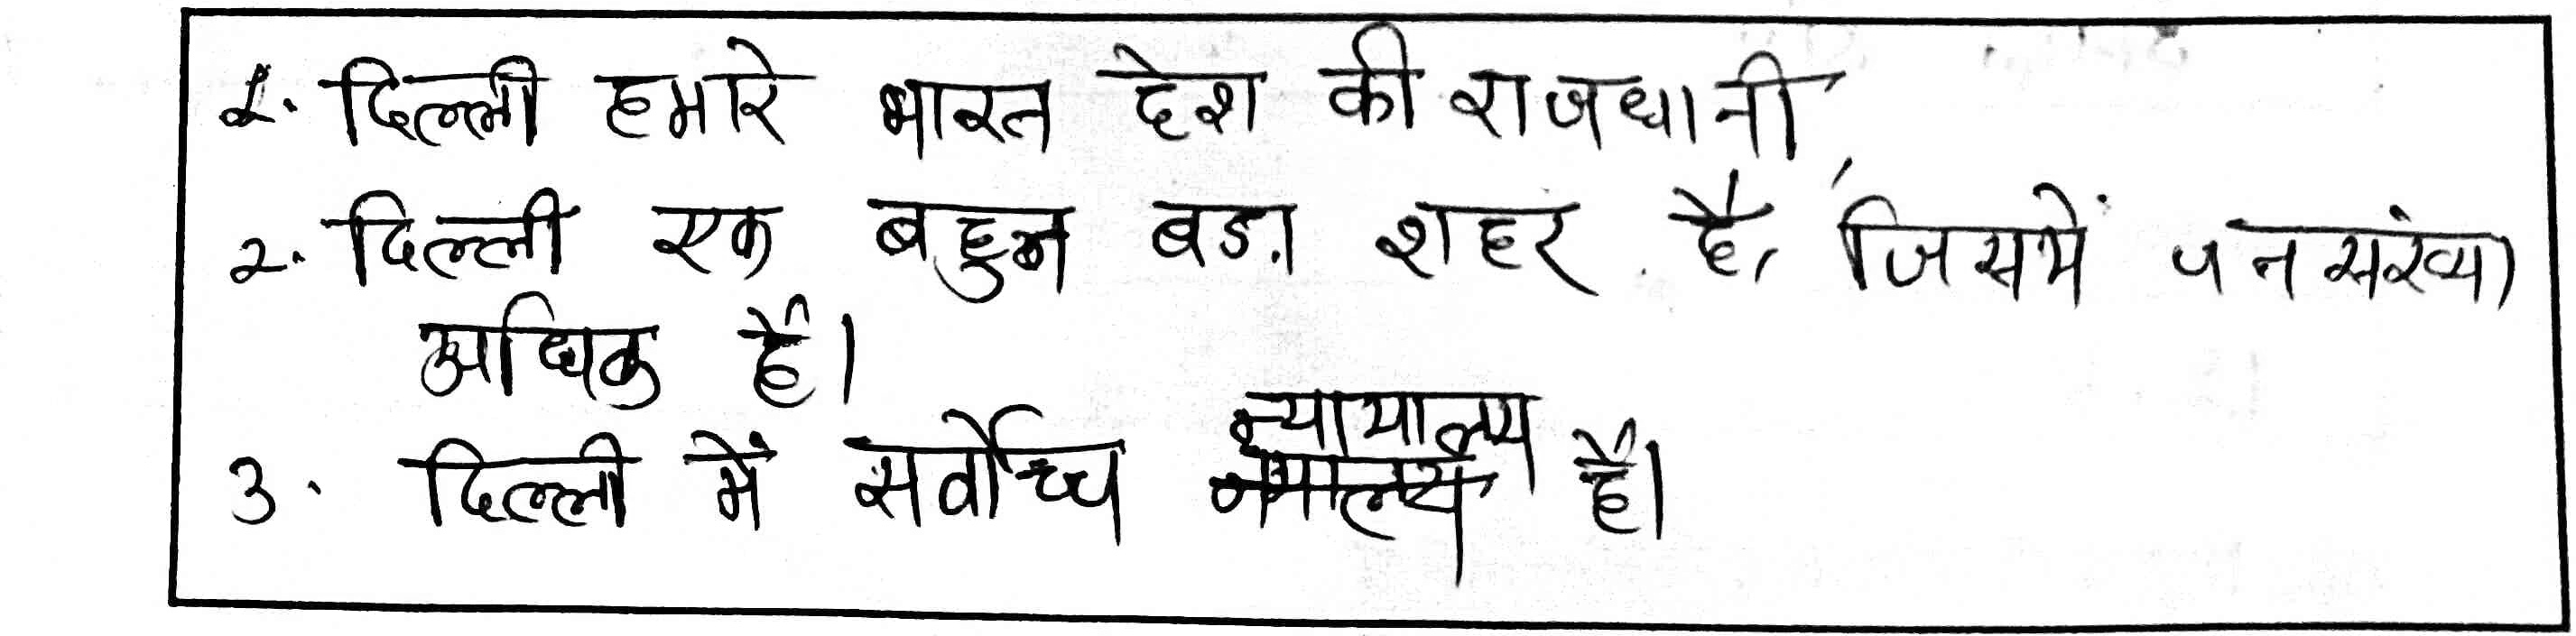 1. दिल्ली हमारे भारत देश की राजधानी
2. दिल्ली एक बहुत बडा़ शहर है, जिसमें जनसंख्या
अधिक है।
3. दिल्ली में सर्वोच्च न्यायालय है।